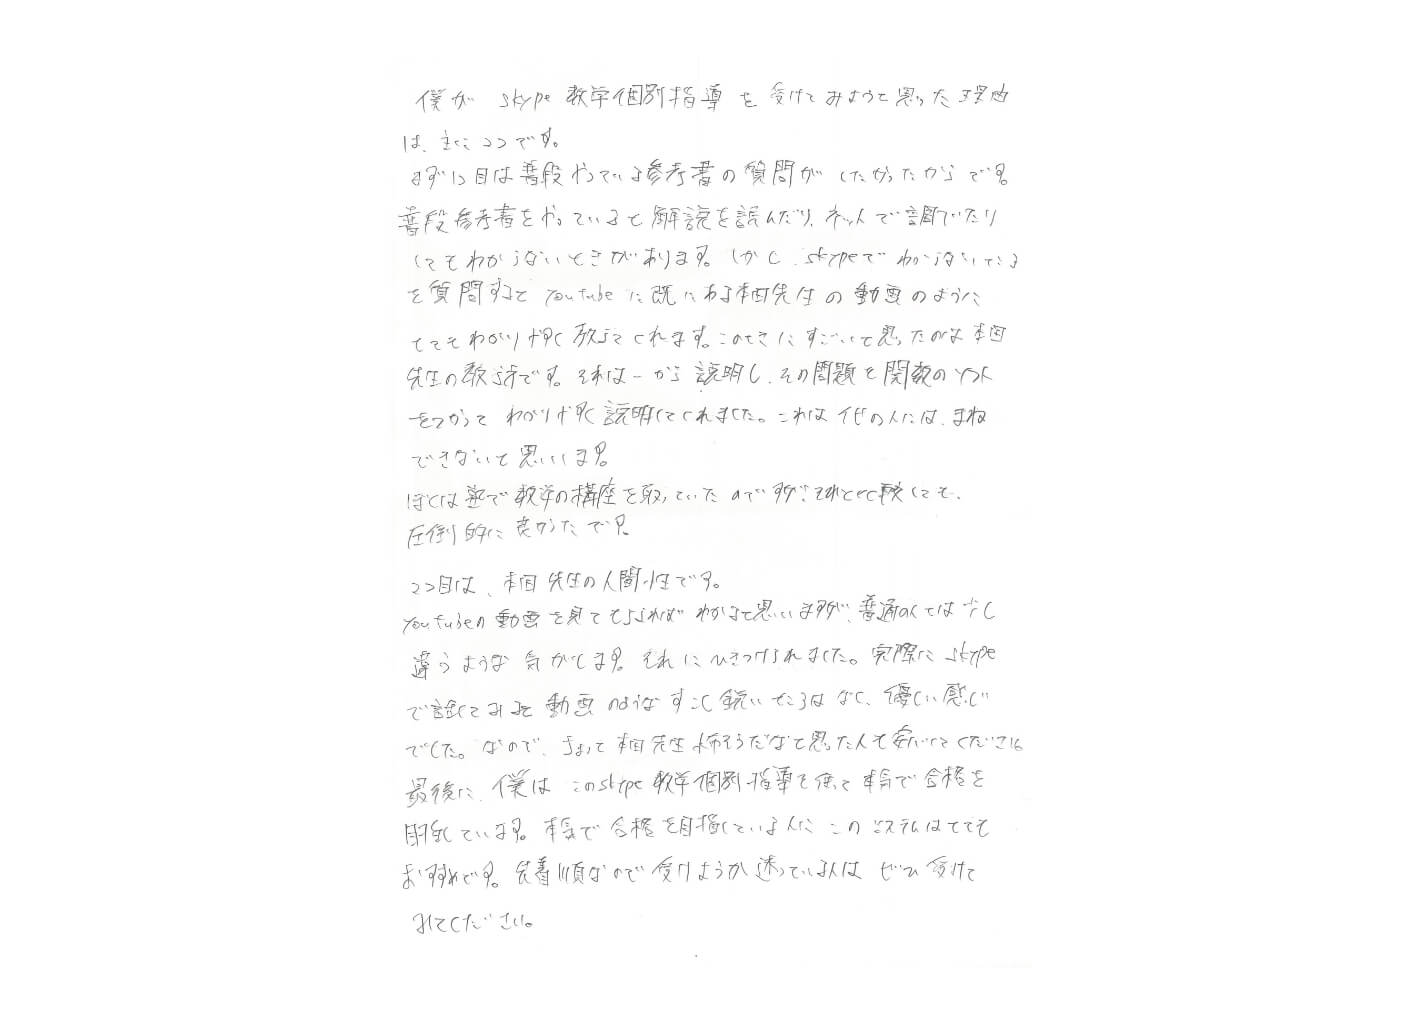 僕が skype 数学個別指導を受けてみようと思った理由
は、主に2つです。
まず1つ目は普段やっている参考書の質問がしたかったからです。
普段参考書をやっていると解説を読んだり、ネットで調ていたり
してもわからないときがあります。しかし、skypeでわからないところ
を質問すると youtube に既にある本田先生の動画のように
とてもわかりやすく教えてくれます。このときにすごいと思ったのは本田
先生の教え方です。それは一から説明し、その問題を関数のソフト
をつかってわかりやすく説明してくれました。これは他の人には、まね
できないと思います。
ぼくは塾で数学の講座を取っていたのですが、それと比較しても、
圧倒的に良かったです。
2つ目は、本田先生の人間性です。
youtubeの動画を見てもらえればわかると思いますが、普通の人とは少し
違うような気がします。それにひきつけられました。実際に skype
で話してみると動画のようなすこし鋭いところはなく、優しい感じ
でした。なので、きょって本田先生怖そうだなと思った人も安心してください。
最後に、僕はこのskype 数学個別指導を使って本気で合格を
目指しています。本気で合格を目指している人にこのシステムはとても
おすすめです。先着順なので受けようか迷っている人はぜひ受けて
みてください。